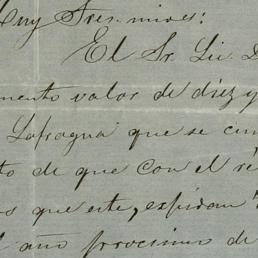 Muy Sres. mios:
El Sr. Lic. D
mento valor de diez y
Lafragua que se cum
to de que con el re
os que este, expidan
l año procsimo de